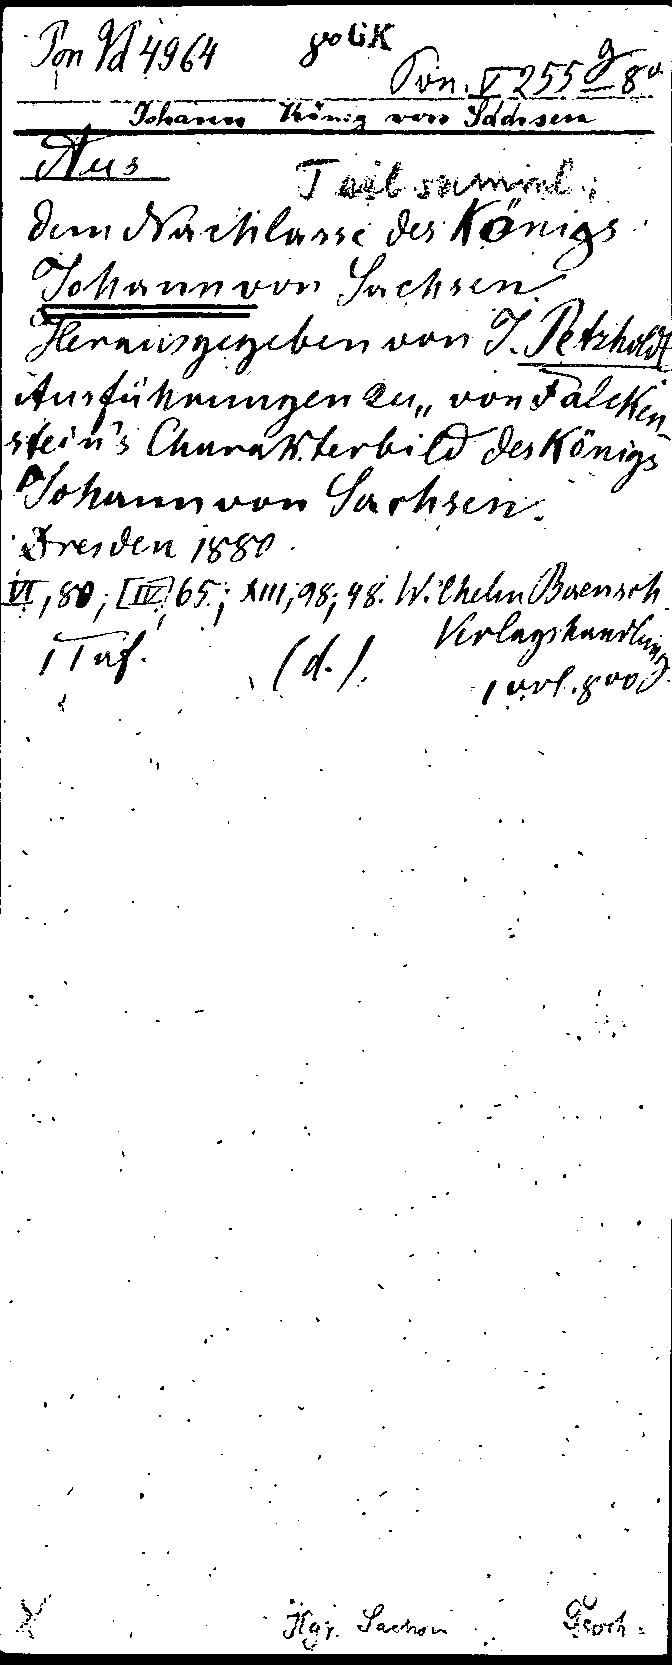 Pon Vd 4964 8° GK
Pon. V 255 g 8°
Johann König von Sachsen
Aus
dem Nachlasse des Königs
Johann von Sachsen.
Herausgegeben von J. Petzholdt
Ausführungen zu „von Falcken-
stein's Charakterbild des Königs
Johann von Sachsen.
Dresden 1880.
VI, 80; [IV], 65; XIII, 98; 98. Wilhelm Baensch
Verlagshandlung
1 Taf. (d.).
Kgr. Sachsen Gesch.